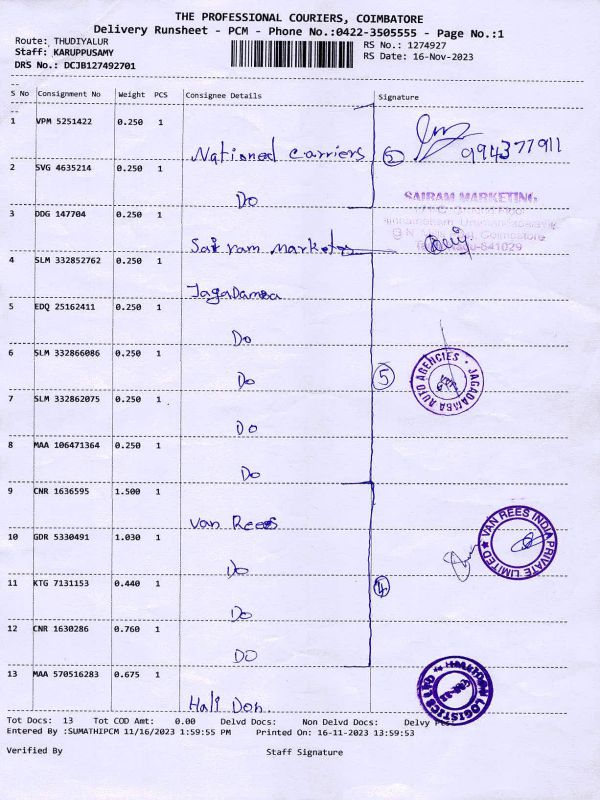 THE PROFESSIONAL COURIERS, COIMBATORE
Delivery Runsheet - PCM - Phone No.:0422-3505555 - Page No.:1
Route: THUDIYALUR
RS No.: 1274927
Staff: KARUPPUSAMY
RS Date: 16-Nov-2023
DRS No.: DCJB127492701
S No Consignment No Weight PCS Consignee Details Signature
1 VPM 5251422 0.250 1
National Carriers 2 994377911
2 SVG 4635214 0.250 1
Do
SAIRAM MARKETING
3 DDG 147704 0.250 1
Sai ram Marketing
Coimbatore
641029
4 SLM 332852762 0.250 1
Jagadamba
5 EDQ 25162411 0.250 1
Do
6 SLM 332866086 0.250 1
Do 5
JAGADAMBA AUTO AGENCIES
7 SLM 332862075 0.250 1
Do
8 MAA 106471364 0.250 1
Do
9 CNR 1636595 1.500 1
Van Rees
VAN REES INDIA PRIVATE LIMITED
10 GDR 5330491 1.030 1
Do
11 KTG 7131153 0.440 1
Do 4
12 CNR 1630286 0.760 1
Do
13 MAA 570516283 0.675 1
Hali Don.
LOGISTICS LTD
Tot Docs: 13 Tot COD Amt: 0.00 Delvd Docs: Non Delvd Docs: Delvy
Entered By :SUMATHIPCM 11/16/2023 1:59:55 PM Printed On: 16-11-2023 13:59:53
Verified By Staff Signature